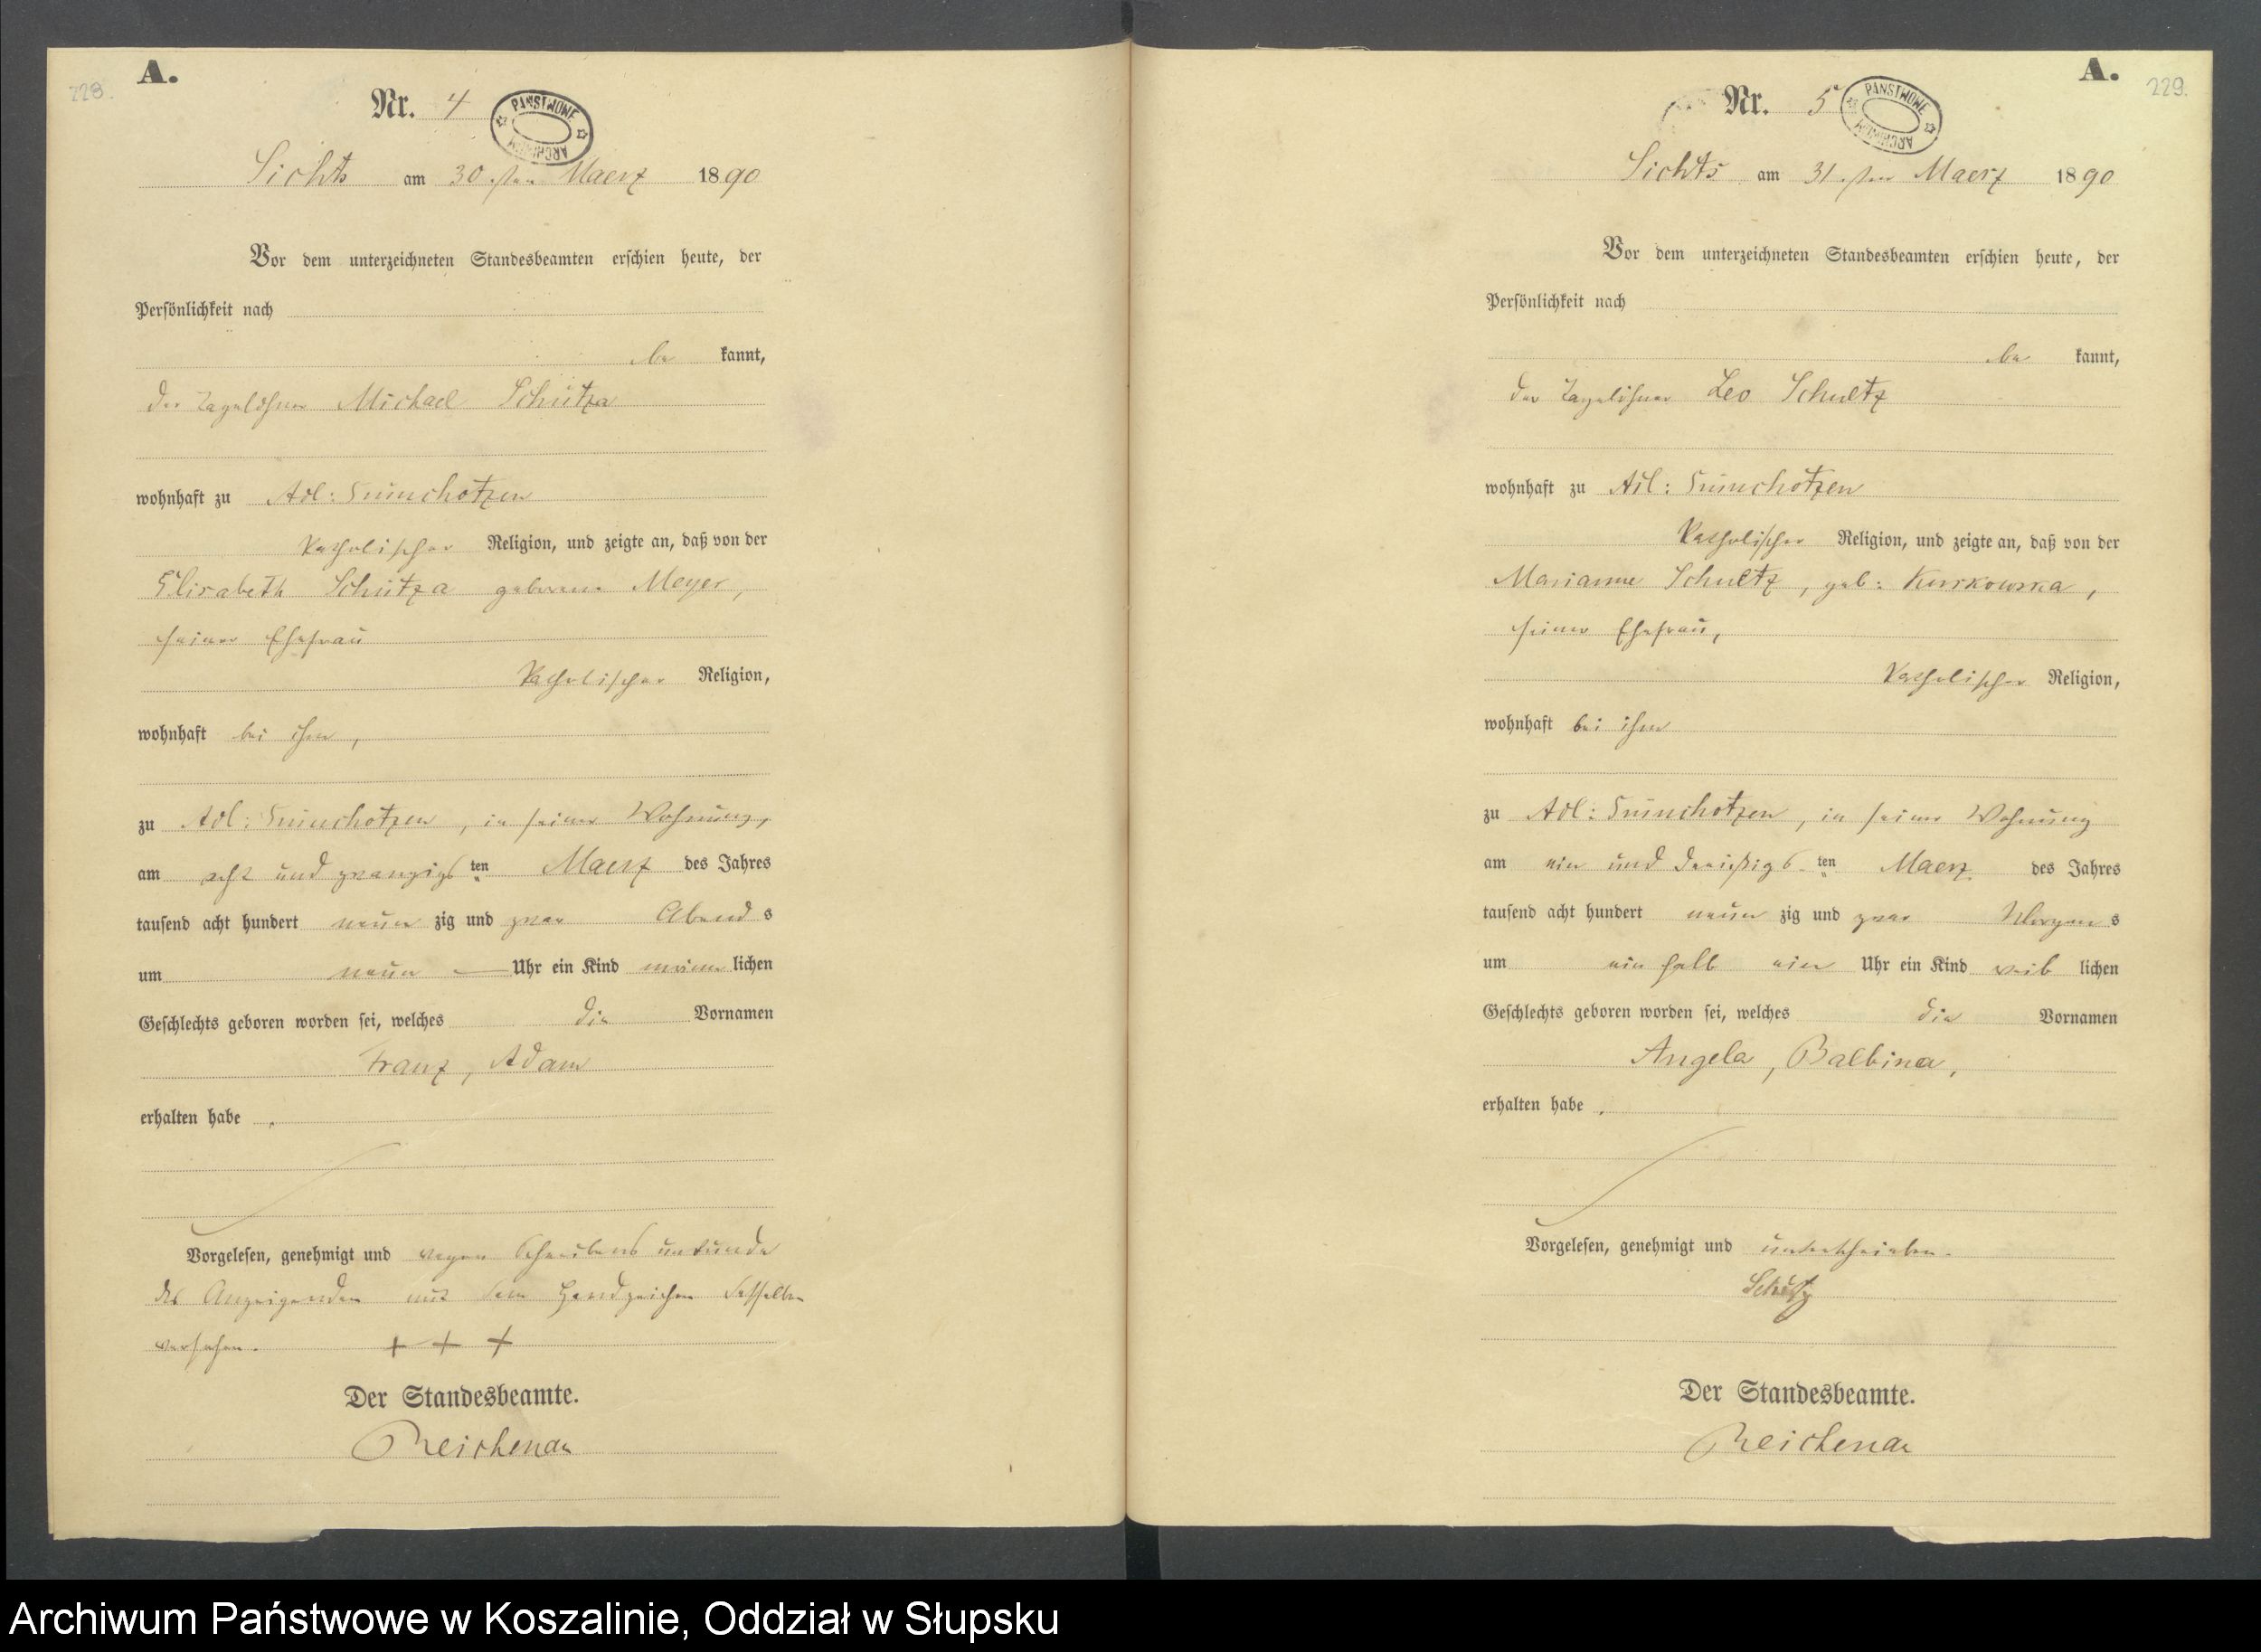 228.
A.
Nr. 4
PAŃSTWOWE
ARCHIWUM
Lichts am 30.sten Maerz 1890
Vor dem unterzeichneten Standesbeamten erschien heute, der
Persönlichkeit nach
be kannt,
der Tagelöhner Michael Schütza
wohnhaft zu Adl:
katholischer Religion, und zeigte an, daß von der
Elisabeth Schütza geborene Meyer,
seiner Ehefrau
katholischer Religion,
wohnhaft bei ihm,
zu Adl: , in seiner Wohnung,
am acht und zwanzigsten Maerz des Jahres
tausend acht hundert neun zig und zwar Abend s
um neun Uhr ein Kind männ lichen
Geschlechts geboren worden sei, welches die Vornamen
Franz, Adam
erhalten habe.
Vorgelesen, genehmigt und wegen Schreibens unkunde
des Anzeigenden mit dem Handzeichen desselben
versehen. + + +
Der Standesbeamte.
Reichenau
A.
229.
Nr. 5
PAŃSTWOWE
ARCHIWUM
Lichts am 31.sten Maerz 1890
Vor dem unterzeichneten Standesbeamten erschien heute, der
Persönlichkeit nach
be kannt,
der Tagelöhner Leo Schultz
wohnhaft zu Adl:
katholischer Religion, und zeigte an, daß von der
Marianne Schultz, geb: Kurkowska,
seiner Ehefrau,
katholischer Religion,
wohnhaft bei ihm
zu Adl: , in seiner Wohnung
am ein und dreißigsten Maerz des Jahres
tausend acht hundert neun zig und zwar Morgen s
um ein halb ein Uhr ein Kind weib lichen
Geschlechts geboren worden sei, welches die Vornamen
Angela, Balbina,
erhalten habe.
Vorgelesen, genehmigt und unterschrieben.
Der Standesbeamte.
Reichenau
Archiwum Państwowe w Koszalinie, Oddział w Słupsku